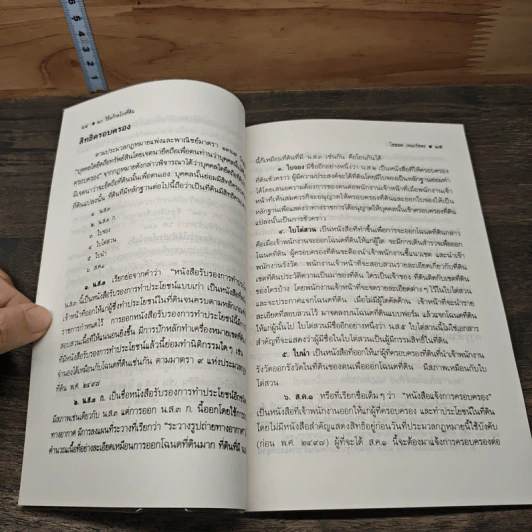 สิทธิครอบครอง
ตามประมวลกฎหมายแพ่งและพาณิชย์มาตรา
"บุคคลใดยึดถือทรัพย์สินโดยเจตนายึดถือเพื่อตนท่านว่าบุคคลนั้น
ครอบครอง" จากกฎหมายดังกล่าวพิจารณาได้ว่าบุคคลใดยึดถือ
เจตนาว่าจะยึดถือที่ดินนั้นเพื่อตนเอง บุคคลนั้นย่อมมีสิทธิ
ที่ดินแปลงนั้น ที่ดินที่มีหลักฐานต่อไปนี้ถือว่าเป็นที่ดินที่มีสิทธิครอบครอง
๑. น.ส.๓
๒. น.ส.๓ ก.
๓. ใบจอง
๔. ใบไต่สวน
๕. ใบนำ
๖. ส.ค.๑
๑. น.ส.๓ เรียกย่อจากคำว่า "หนังสือรับรองการทำประโยชน์
น.ส.๓ นี้เป็นหนังสือรับรองการทำประโยชน์แบบเก่า เป็นหนังสือ
เจ้าหน้าที่ออกให้แก่ผู้ซึ่งทำประโยชน์ในที่ดินจนครบตามหลักเกณฑ์
ราชการกำหนดไว้ การออกหนังสือรับรองการทำประโยชน์นี้
สอบสวนเนื้อที่ที่แน่นอนยิ่งขึ้น มีการปักหลักทำเครื่องหมายเขตที่ดิน
ที่มีหนังสือรับรองการทำประโยชน์แล้วนี้ย่อมทำนิติกรรมใดๆ เช่น
จำนองได้เหมือนกับโฉนดที่ดินเช่นกัน ตามมาตรา ๙ แห่งประมวล
ที่ดิน พ.ศ. ๒๔๙๗
๒. น.ส.๓ ก. เป็นชื่อหนังสือรับรองการทำประโยชน์อีก
มีสภาพเช่นเดียวกับ น.ส.๓ แต่การออก น.ส.๓ ก. นี้ออกโดยใช้
ทางอากาศ มีการลงแผนที่ระวางที่เรียกว่า "ระวางรูปถ่ายทางอากาศ"
คำนวณเนื้อที่อย่างละเอียดเหมือนการออกโฉนดที่ดินมาก ที่ดินที่มี
นี้ก็เหมือนที่ดินที่มี น.ส.๓ เช่นกัน คือโอนกันได้
๓. ใบจอง เป็นหนังสืออีกอย่างหนึ่งซึ่งเป็นหนังสือที่ให้ครอบครอง
ที่ดินชั่วคราว
ได้โดยเสนอความต้องการของตนต่อพนักงานเจ้าหน้าที่ เมื่อพนักงานเจ้า
หน้าที่เห็นสมควรก็จะอนุญาตให้ครอบครองที่ดินและออกใบจองให้เป็น
หลักฐานเพื่อแสดงว่าทางราชการได้อนุญาตให้บุคคลนั้นเข้าครอบครองที่ดิน
แปลงนั้นเป็นการชั่วคราว
๔. ใบไต่สวน เป็นหนังสือที่ทำขึ้นเพื่อการจะออกโฉนดที่ดินกล่าว
คือเมื่อเจ้าพนักงานจะออกโฉนดที่ดินให้แก่ผู้ใด จะมีการเดินสำรวจเพื่อออก
โฉนดที่ดิน โดยผู้ครอบครองที่ดินจะต้องนำเจ้าพนักงานชี้แนวเขต และนำเจ้า
พนักงานรังวัด พนักงานเจ้าหน้าที่จะสอบสวนรายละเอียดเกี่ยวกับที่ดิน
เขตที่ดินติดต่อกับเขต
ของใครบ้าง โดยพนักงานเจ้าหน้าที่จะจดรายละเอียดต่าง ๆ ไว้ในใบไต่สวน
และจะประกาศแจกโฉนดที่ดิน เมื่อไม่มีผู้ใดคัดค้าน เจ้าหน้าที่จะนำราย
ละเอียดที่สอบสวนไว้ มาจดลงบนโฉนดที่ดินแบบฟอร์ม แล้วแจกโฉนดที่ดิน
ให้แก่ผู้นั้นไป ใบไต่สวนมีชื่ออีกอย่างหนึ่งว่า น.ส.๕ ใบไต่สวนนี้ไม่ใช่เอกสาร
สำคัญที่จะแสดงว่าผู้มีชื่อในใบไต่สวนเป็นผู้มีกรรมสิทธิ์ในที่ดินนี้
๕. ใบนำ เป็นหนังสือที่ออกให้แก่ผู้ที่ครอบครองที่ดินที่นำเจ้าพนักงาน
รังวัดออกรังวัดในที่ดินของตนเพื่อออกโฉนดที่ดิน มีสภาพเหมือนกับใบ
ไต่สวน
๖. ส.ค.๑ หรือที่เรียกชื่อเต็ม ๆ ว่า "หนังสือแจ้งการครอบครอง"
เป็นหนังสือที่เจ้าพนักงานออกให้แก่ผู้ที่ครอบครอง และทำประโยชน์ในที่ดิน
โดยไม่มีหนังสือสำคัญแสดงสิทธิอยู่ก่อนวันที่ประมวลกฎหมายนี้ใช้บังคับ
(ก่อน พ.ศ. ๒๔๙๗) ผู้ที่จะได้ ส.ค.๑ นี้จะต้องมาแจ้งการครอบครองต่อ